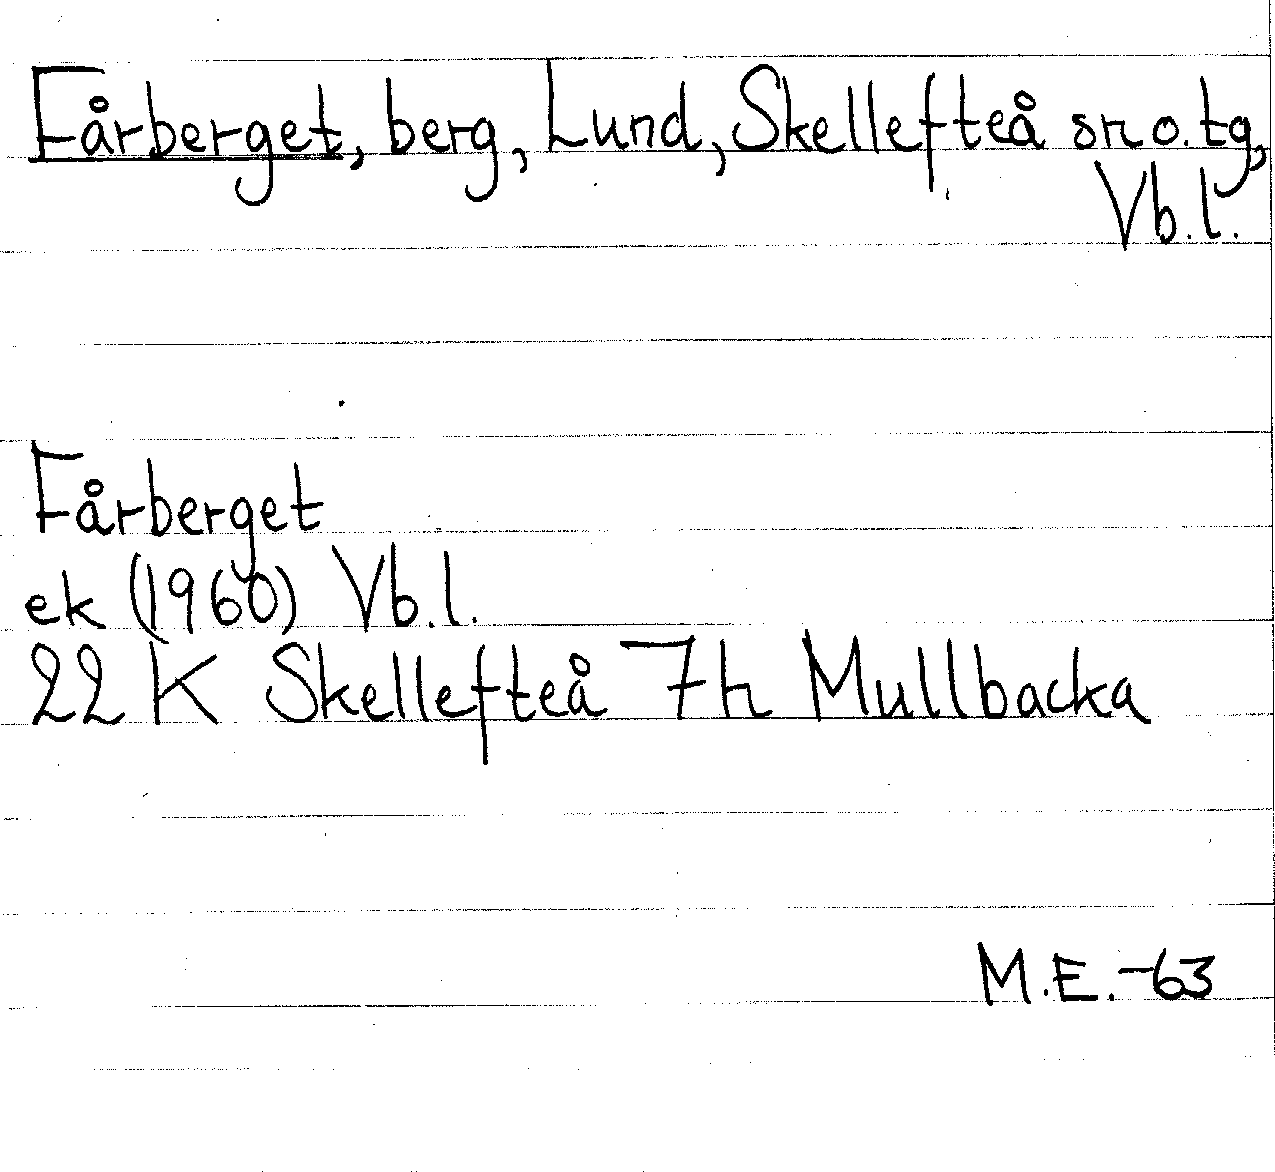 Fårberget, berg, Lund, Skellefteå sn o. tg,
Vb.l.
Fårberget
ek (1960) Vb.l.
22 K Skellefteå 7h Mullbacka
M.E.-63